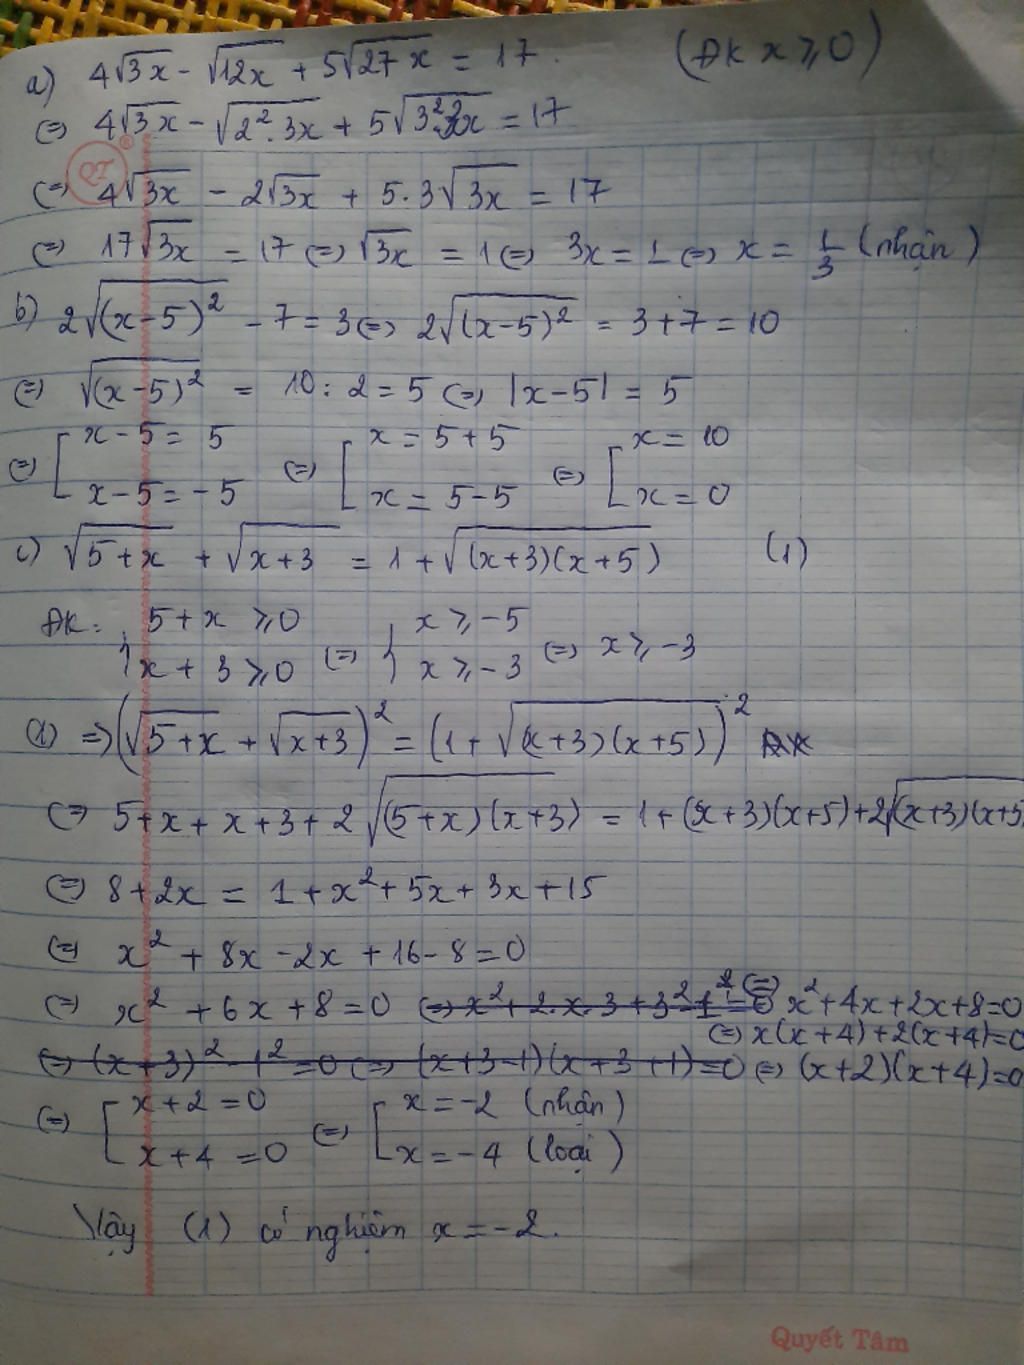 a) 4√3x - √12x + 5√27x = 17. (ĐK x ⩾ 0)
(=) 4√3x - √2².3x + 5√3².3x = 17
QT ®
(=) 4√3x - 2√3x + 5.3√3x = 17
(=) 17√3x = 17 (=) √3x = 1 (=) 3x = 1 (=) x = 1/3 (nhận)
b) 2√(x-5)² - 7 = 3 (=) 2√(x-5)² = 3+7 = 10
(=) √(x-5)² = 10 : 2 = 5 (=) |x-5| = 5
(=) [ x - 5 = 5 (=) [ x = 5+5 (=) [ x = 10
x - 5 = -5 x = 5-5 x = 0
c) √5+x + √x+3 = 1 + √(x+3)(x+5) (1)
ĐK: { 5+x ⩾ 0 (=) { x ⩾ -5 (=) x ⩾ -3
x + 3 ⩾ 0 x ⩾ -3
(1) =) (√5+x + √x+3)² = (1 + √(x+3)(x+5))²
(=) 5+x+x+3+2√(5+x)(x+3) = 1+(x+3)(x+5)+2√(x+3)(x+5)
(=) 8+2x = 1+x²+5x+3x+15
(=) x² + 8x - 2x + 16 - 8 = 0
(=) x² + 6x + 8 = 0 (=) x²+2.x.3+3²-1²=0 (=) x²+4x+2x+8=0
(=) x(x+4)+2(x+4)=0
(=) (x+3)²-1²=0 (=) (x+3-1)(x+3+1)=0 (=) (x+2)(x+4)=0
(=) [ x+2=0 (=) [ x=-2 (nhận)
x+4=0 x=-4 (loại)
Vậy (1) có nghiệm x=-2.
Quyết Tâm